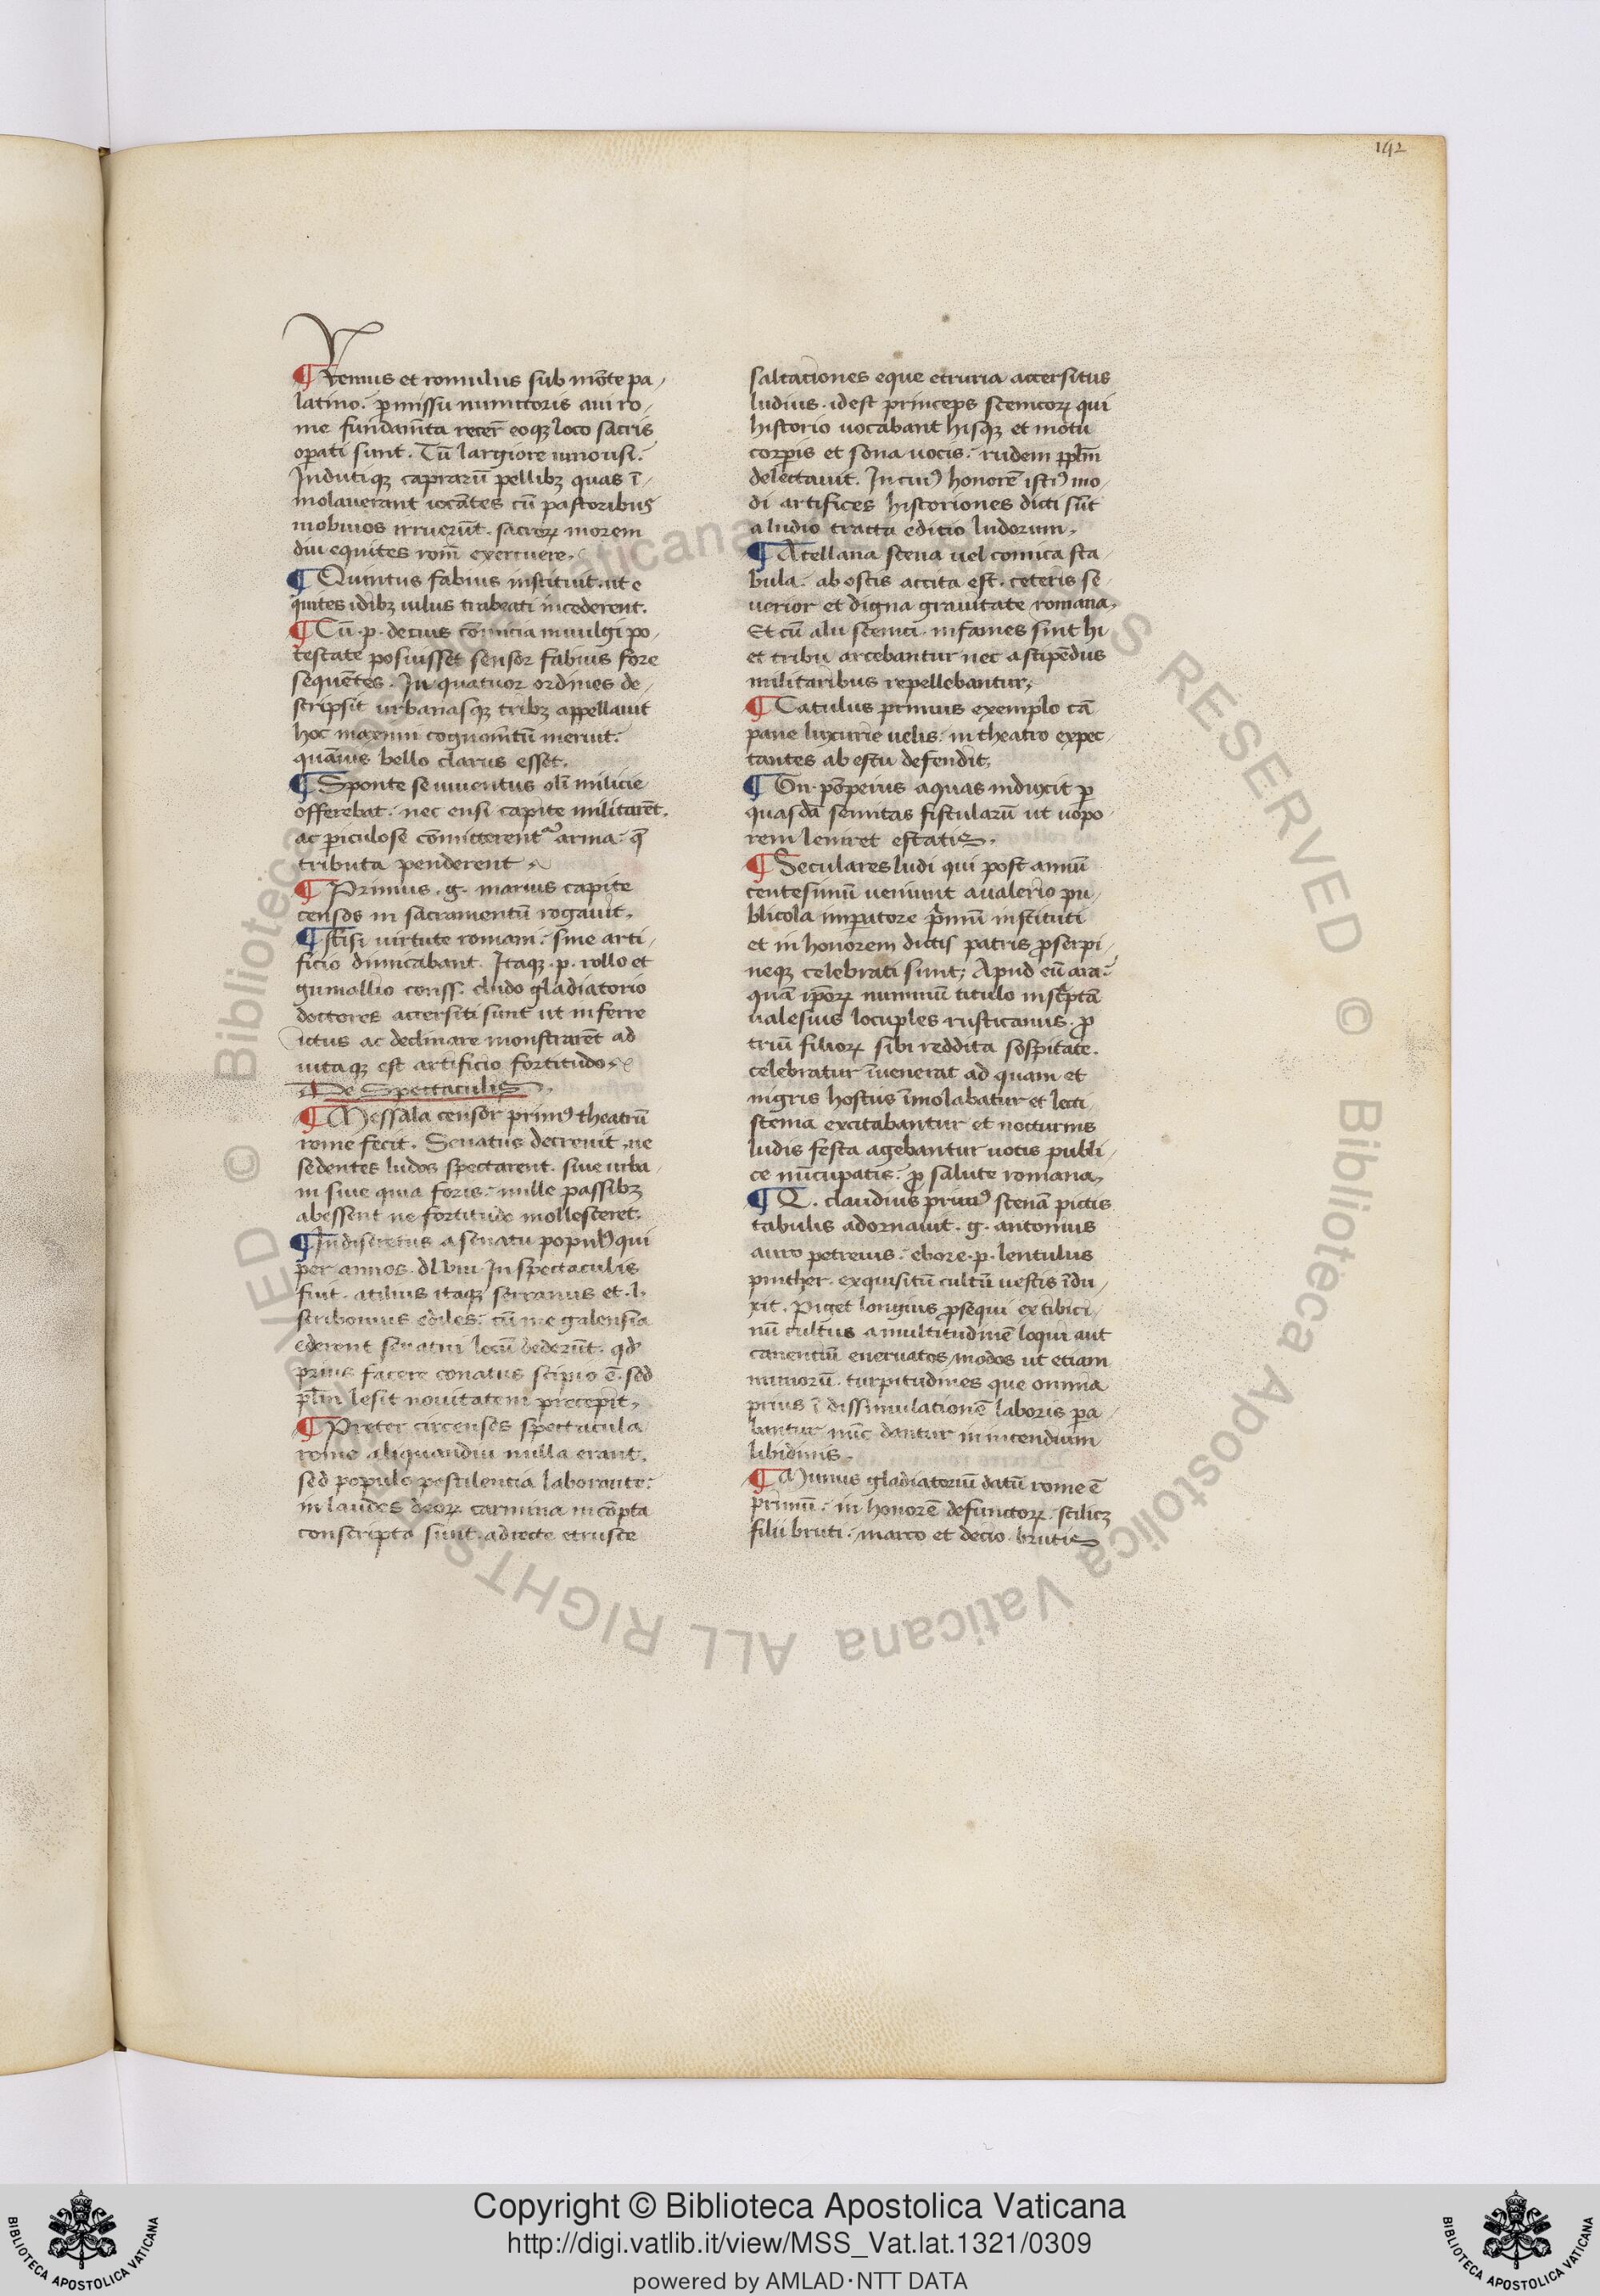 142
¶ Remus et romulus sub mōte pa-
latino. ꝑmissu numitoris aui ro-
me fundam̄ta recer̄ eoqꝫ loco sacris
oꝑati sunt. Cū largiore uino usi.
Indutiqꝫ caprarū pellibꝫ quas ī-
molauerant iocātes cū pastoribus
in obuios irruerūt. sacroꝝ morem
diu equites rom̄ exercuere.
¶ Quintus fabius instituit. ut e
quites idibꝫ iulus trabeati incederent.
¶ Cū .p. decius cōmicia in uulgi po-
testate posuisset sensor fabius fore
sequētes. In quatuor ordines de-
scripsit urbanasqꝫ tribꝫ appellauit
hoc maximi cognom̄tū meruit.
quāuis bello clarus esset.
¶ Sponte se iuuentus olī milicie
offerebat. nec ensi capite militarēt.
ac ꝑiculose cōmitterent᷑ arma. q̄
tributa penderent
¶ Primus .g. marius capite
censos in sacramentū rogauit.
¶ Sīsi uirtute romani. sine arti-
ficio dimicabant. Itaqꝫ .p. rollo et
gn mallio conss. cludo gladiatorio
doctores accersiti sunt ut inferre
ictus ac declinare monstrarēt ad
iutaqꝫ est artificio fortitudo
De Spectaculis
¶ Messala censor primꝰ theatrū
rome fecit. Senatus decreuit. ne
sedentes ludos spectarent. siue urba-
ni siue quia foris. mille passibꝫ
abessent ne fortitudo mollesceret.
¶ Indiscretus a senatu populꝰ qui
per annos. dlviii In spectaculis
fuit. atilius itaqꝫ serranus et .l.
scribonius ediles. cū megalensia
ederent senatui locū dederūt. qd̕
prius facere conatus scipio ē. sed
pl̄m lesit nouitatem precepit.
¶ Preter circenses spectacula
rome aliquandiu nulla erant.
sed populo pestilentia laborante.
in laudes deoꝝ carmina incōpta
conscripta sunt. adiecte etrusce
saltaciones eque etruria accersitus
ludius. idest princeps scenicoꝝ qui
historio uocabant hisqꝫ et motu
corꝑis et sona uocis. rudem ppl̄m
delectauit. In cuiꝰ honorē istiꝰ mo-
di artifices historiones dicti sūt
a ludio tracta edicio ludorum.
¶ Atellana scena uel comica fta-
bula. ab ostis accita est. ceteris se-
uerior et digna grauitate romana.
Et cū alii scenici. infames sint hi
et tribu arcebantur nec a stipēdiis
militaribus repellebantur.
¶ Catulus primus exemplo cā
pane luxurie uelis. in theatro expec-
tantes ab estu defendit.
¶ Gn. pōpeius aquas induxit p
quasdā semitas fistularū ut uopo-
rem leniret estatis.
¶ Seculares ludi qui post annū
centesimū ueniunt a ualerio pu-
blicola imperatore p̄mū instituti
et in honorem dictis patris ꝓserpi-
neqꝫ celebrati sunt; Apud eū ara.
quā ip̄oꝝ numinū titulo inscͥptā
ualesius locuples rusticanus. ꝓ
triū filioꝝ sibi reddita sospitate.
celebratur īuenerat ad quam et
nigris hostiis īmolabatur et lecti
stema excitabantur et nocturnis
ludis festa agebantur uotis publi-
ce nūcupatis. ꝓ salute romana.
¶ Q. claudius primꝰ scenā pictis
tabulis adornauit. g. antonius
auro petreius. ebore .p. lentulus
pinther. exquisitū cultū uestis īdu-
xit. Piget longius ꝓsequi ex tibici-
nū cultus a multitudinē loqui aut
canentiū eneruatos modos ut etiam
mimorū. turpitudines que omnia
prius ī dissimulationē laboris ꝑa-
bantur nūc dantur in incendium
libidinis.
¶ Munus gladiatoriū datū rome ē
primū. in honorē defunctoꝝ. scilicꝫ
filii bruti. marco et decio. brutis
Copyright © Biblioteca Apostolica Vaticana
http://digi.vatlib.it/view/MSS_Vat.lat.1321/0309
powered by AMLAD·NTT DATA
BIBLIOTECA APOSTOLICA VATICANA
BIBLIOTECA APOSTOLICA VATICANA
© Biblioteca Apostolica Vaticana ALL RIGHTS RESERVED
© Biblioteca Apostolica Vaticana ALL RIGHTS RESERVED